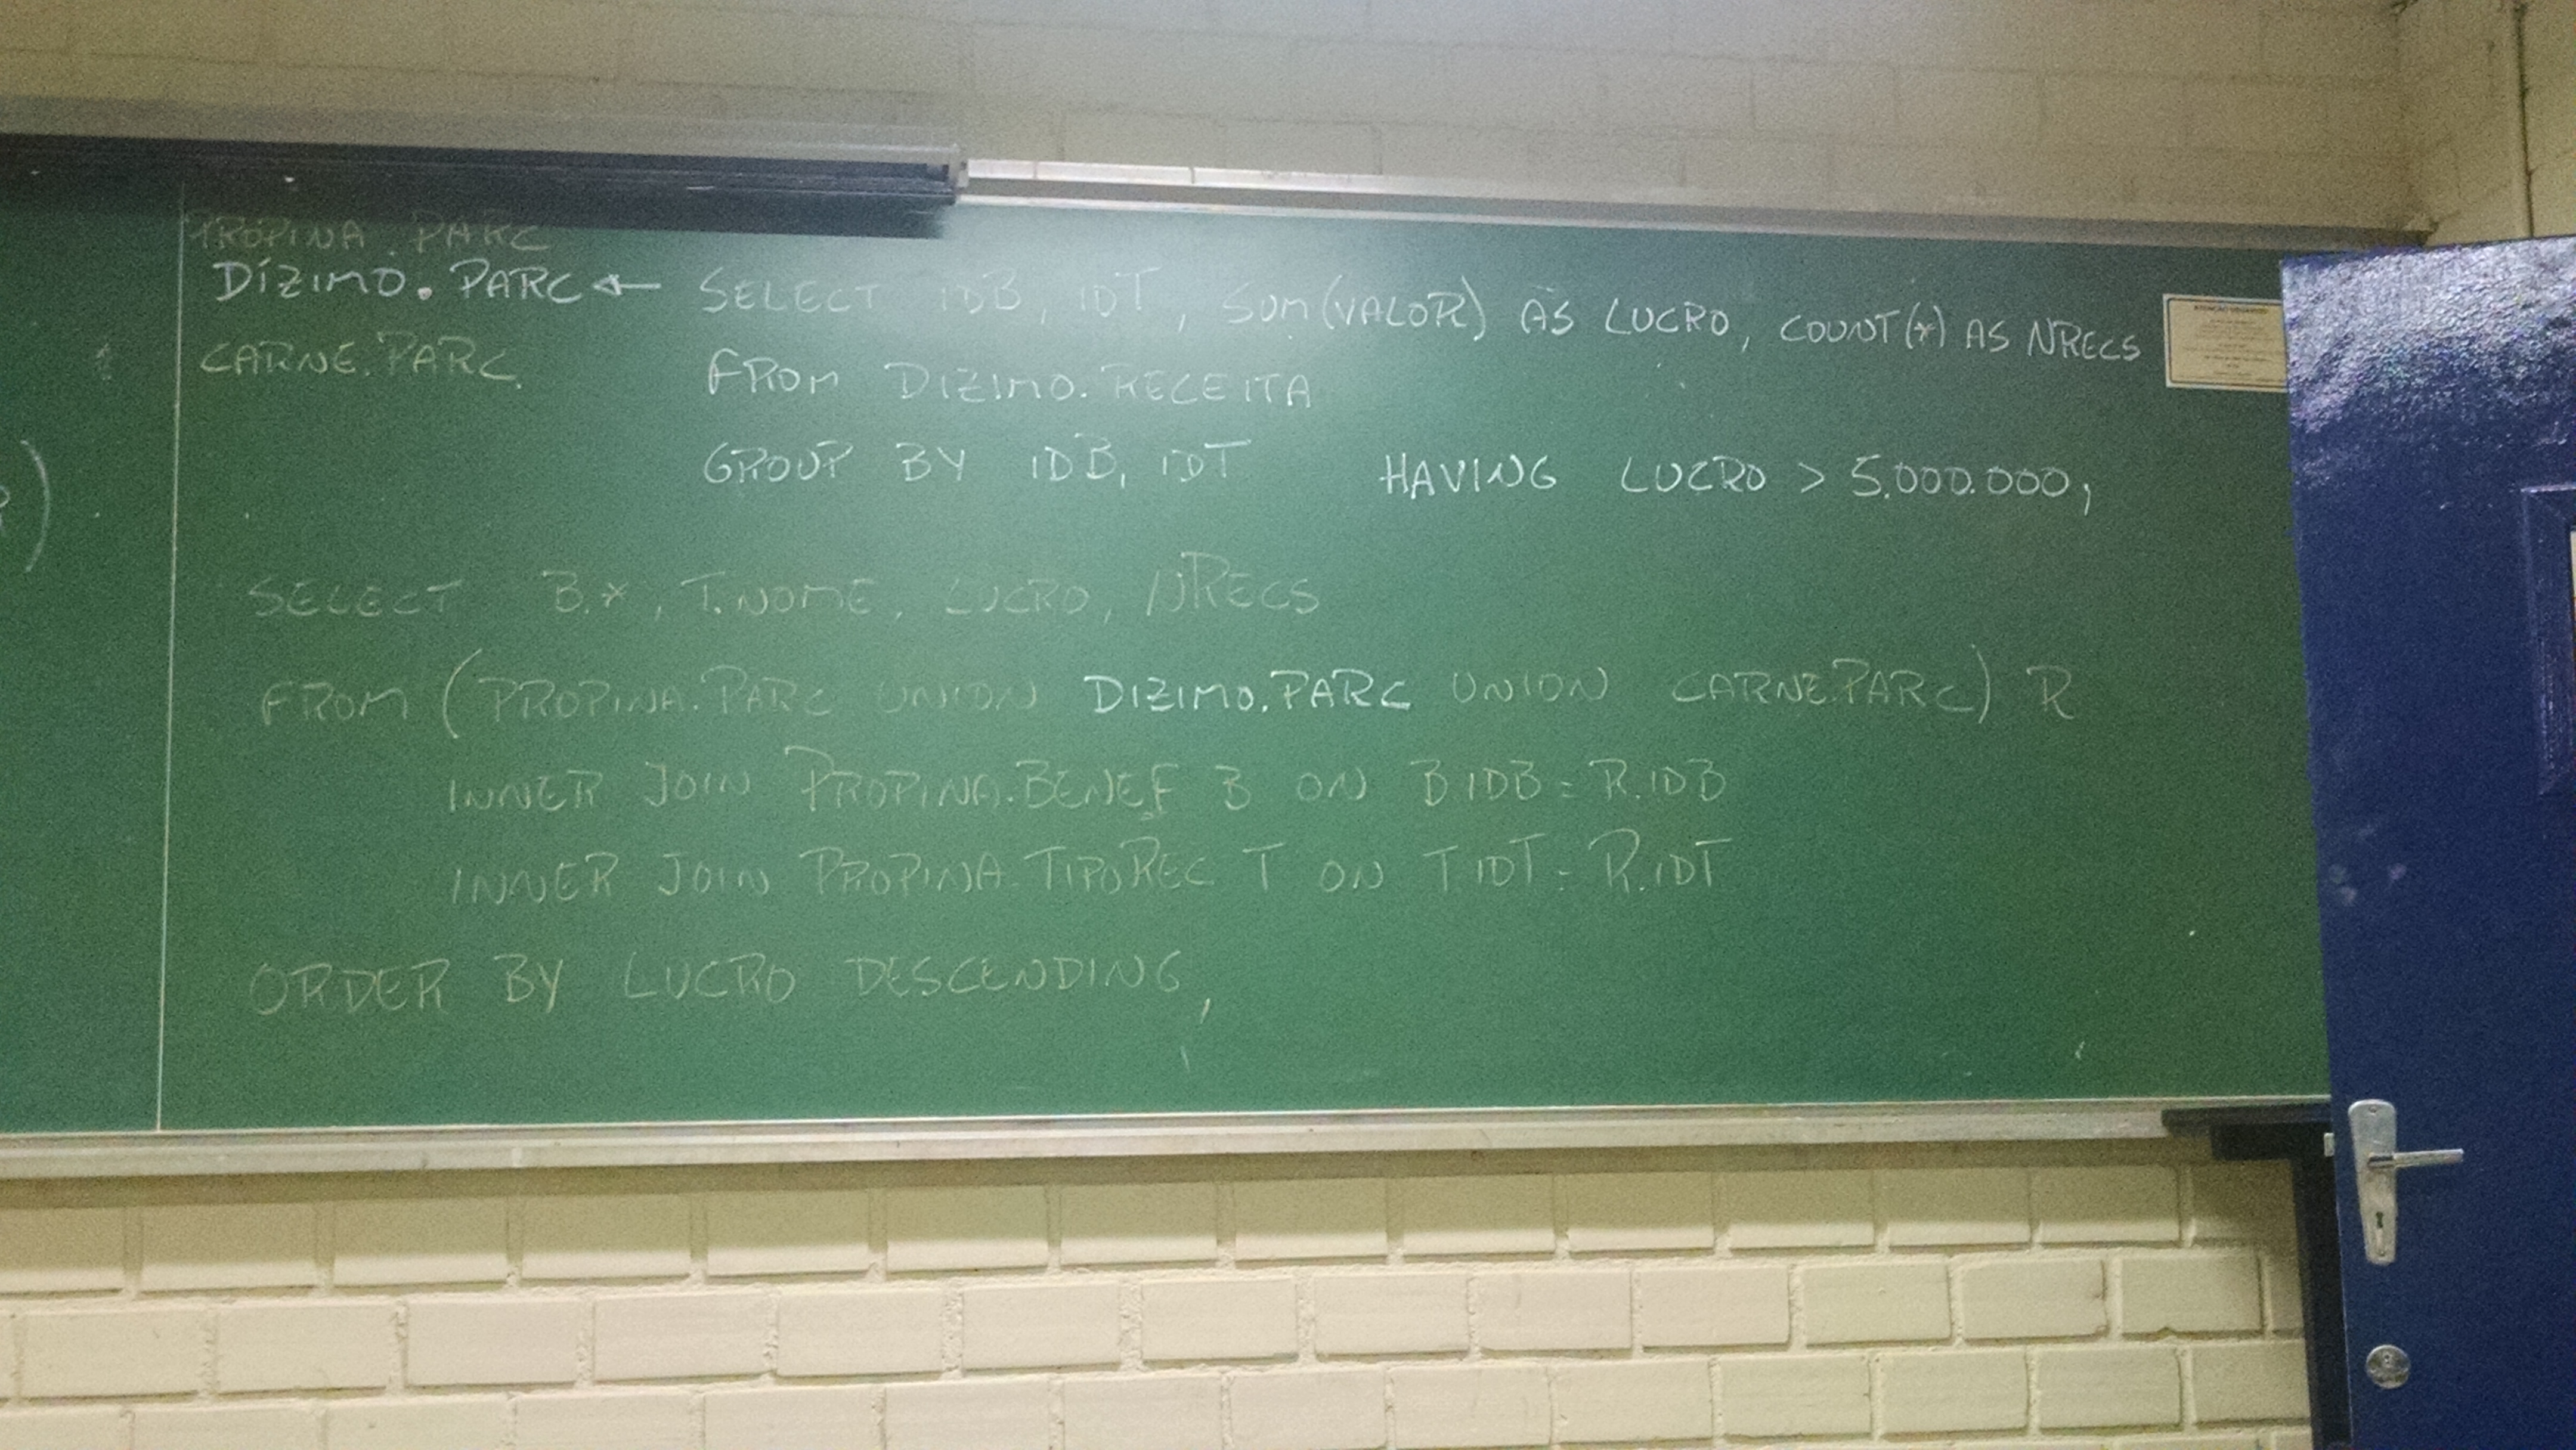 PROPINA.PARC
DÍZIMO.PARC ← SELECT IDB, IDT, SUM(VALOR) AS LUCRO, COUNT(*) AS NRECS
CARNE.PARC FROM DIZIMO.RECEITA
GROUP BY IDB, IDT HAVING LUCRO > 5.000.000;
)
SELECT B.*, T.NOME, LUCRO, NRECS
FROM (PROPINA.PARC UNION DIZIMO.PARC UNION CARNE.PARC) R
INNER JOIN PROPINA.BENEF B ON B.IDB = R.IDB
INNER JOIN PROPINA.TIPOREC T ON T.IDT = R.IDT
ORDER BY LUCRO DESCENDING;